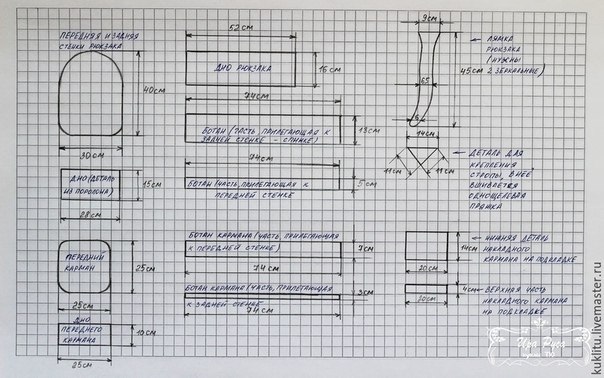 ПЕРЕДНЯЯ И ЗАДНЯЯ
СТЕНКИ РЮКЗАКА
40см
30 см
ДНО (ДЕТАЛЬ
ИЗ ПОРОЛОНА)
15см
28 см
ПЕРЕДНИЙ
КАРМАН
25см
25см
ДНО
ПЕРЕДНЕГО
КАРМАНА
10см
25см
52см
ДНО РЮКЗАКА
16см
74см
БОТАН (ЧАСТЬ ПРИЛЕГАЮЩАЯ К
ЗАДНЕЙ СТЕНКЕ - СПИНКЕ)
13см
74см
БОТАН (ЧАСТЬ, ПРИЛЕГАЮЩАЯ К
ПЕРЕДНЕЙ СТЕНКЕ
5см
БОТАН КАРМАНА (ЧАСТЬ, ПРИЛЕГАЮЩАЯ
К ПЕРЕДНЕЙ СТЕНКЕ)
7см
74см
БОТАН КАРМАНА (ЧАСТЬ, ПРИЛЕГАЮЩАЯ
К ЗАДНЕЙ СТЕНКЕ
3см
74см
9см
ЛЯМКА
РЮКЗАКА
(НУЖНЫ
2 ЗЕРКАЛЬНЫЕ)
45см
65
6
14см
11см
11см
ДЕТАЛЬ ДЛЯ
КРЕПЛЕНИЯ
СТРОПЫ, В НЕЕ
ВШИВАЕТСЯ
ОДНОЩЕЛЕВАЯ
ПРЯЖКА
14см
20см
НИЖНЯЯ ДЕТАЛЬ
НАКЛАДНОГО
КАРМАНА НА ПОДКЛАДКЕ
4см
20см
ВЕРХНЯЯ ЧАСТЬ
НАКЛАДНОГО КАРМАНА
НА ПОДКЛАДКЕ
kuklitu.livemaster.ru